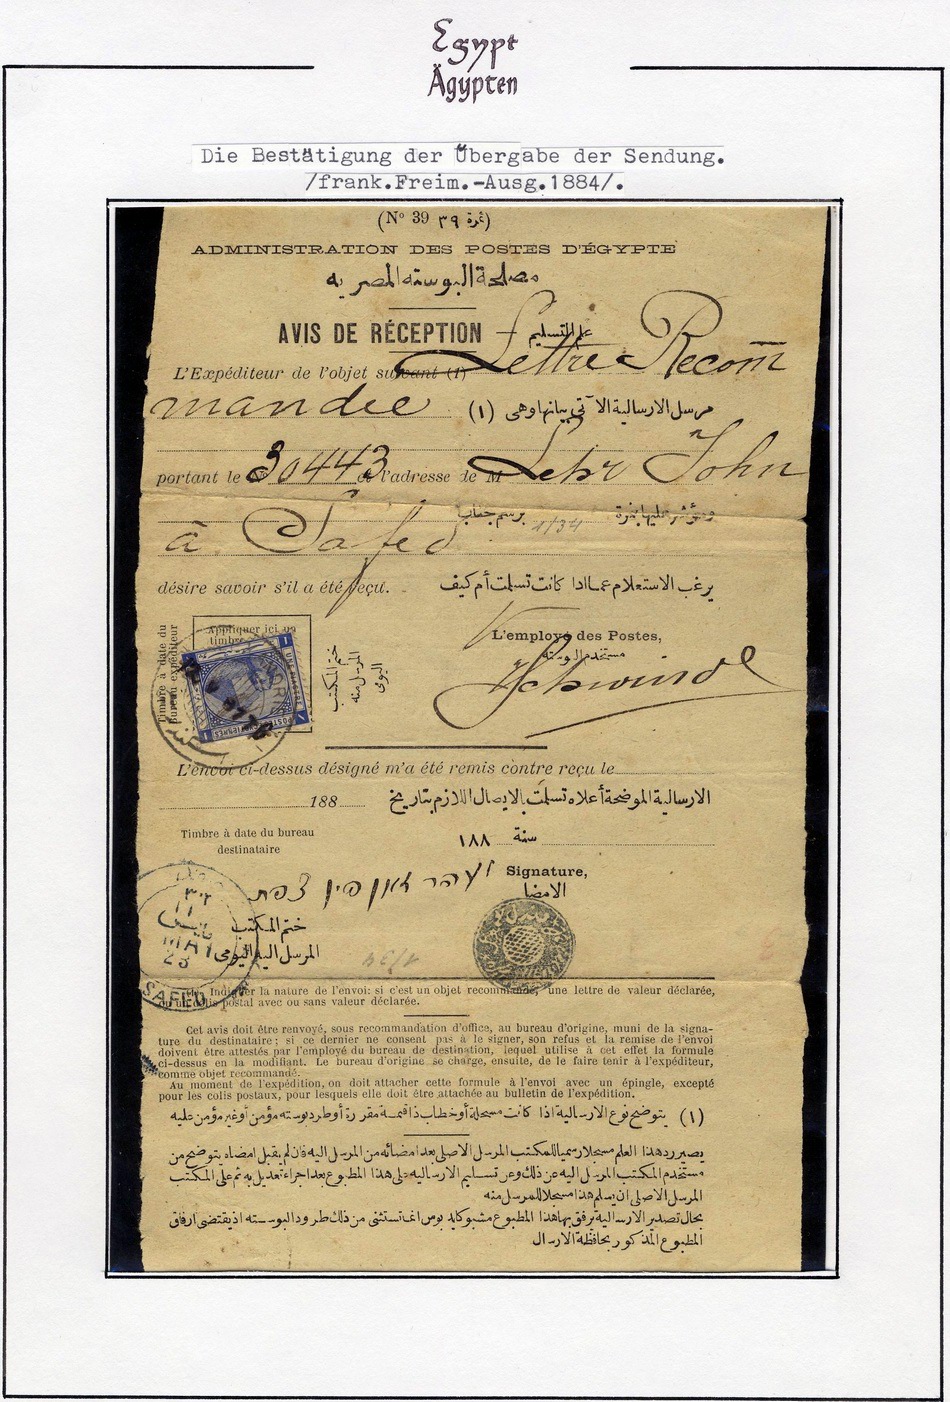 Egypt
Ägypten
Die Bestätigung der Übergabe der Sendung.
/frank.Freim.-Ausg.1884/.
(Nº 39 نمرة ٣٩)
ADMINISTRATION DES POSTES D'ÉGYPTE
مصلحة البوسته المصريه
AVIS DE RÉCEPTION
علم التسليم
L'Expéditeur de l'objet suivant (1) Lettre Recom
mandée (١) مرسل الارسالية الآتي بيانها وهى
portant le Nº 30443 et l'adresse de M Lehr John
ومؤشر عليها بنمرة برسم جناب
1/34
à Safed
désire savoir s'il a été reçu. يرغب الاستعلام عما اذا كانت تسلمت أم كيف
Timbre à date du
bureau expéditeur
Appliquer ici un
timbre
ختم المكتب
المرسل منه
اليومى
L'employé des Postes,
مستخدم البوسته
L'envoi ci-dessus désigné m'a été remis contre reçu le
188 الارسالية الموضحة أعلاه تسلمت بالايصال اللازم بتاريخ
Timbre à date du bureau
destinataire
سنة ١٨٨
Signature,
الامضا
ختم المكتب
المرسل اليه اليومى
11
MAI
23
SAFED
1/34
(1) Indiquer la nature de l'envoi: si c'est un objet recommandé, une lettre de valeur déclarée,
ou un colis postal avec ou sans valeur déclarée.
Cet avis doit être renvoyé, sous recommandation d'office, au bureau d'origine, muni de la signa-
ture du destinataire; si ce dernier ne consent pas à le signer, son refus et la remise de l'envoi
doivent être attestés par l'employé du bureau de destination, lequel utilise à cet effet la formule
ci-dessus en la modifiant. Le bureau d'origine se charge, ensuite, de faire tenir à l'expéditeur,
comme objet recommandé.
Au moment de l'expédition, on doit attacher cette formule à l'envoi avec un épingle, excepté
pour les colis postaux, pour lesquels elle doit être attachée au bulletin de l'expédition.
(١) يتوضح نوع الارسالية اذا كانت مسجلة أو خطاب ذا قيمة مقررة أو طرد بوسته مؤمن أو غير مؤمن عليه
يصير رد هذا العلم مسجلا رسميا للمكتب المرسل الاصلى بعد امضائه من المرسل اليه فان لم يقبل امضاه يتوضح من
مستخدم المكتب المرسل اليه عن ذلك وعن تسليم الارساليه على هذا المطبوع بعد اجراء تعديل به ثم على المكتب
المرسل الاصلى ان يسلم هذا مسجلا للمرسل منه
بحال تصدير الارسالية يرفق بها هذا المطبوع مشبوكا بدبوس انما تستثنى من ذلك طرود البوسته اذ يقتضى ارفاق
المطبوع المذكور بحافظة الارسال